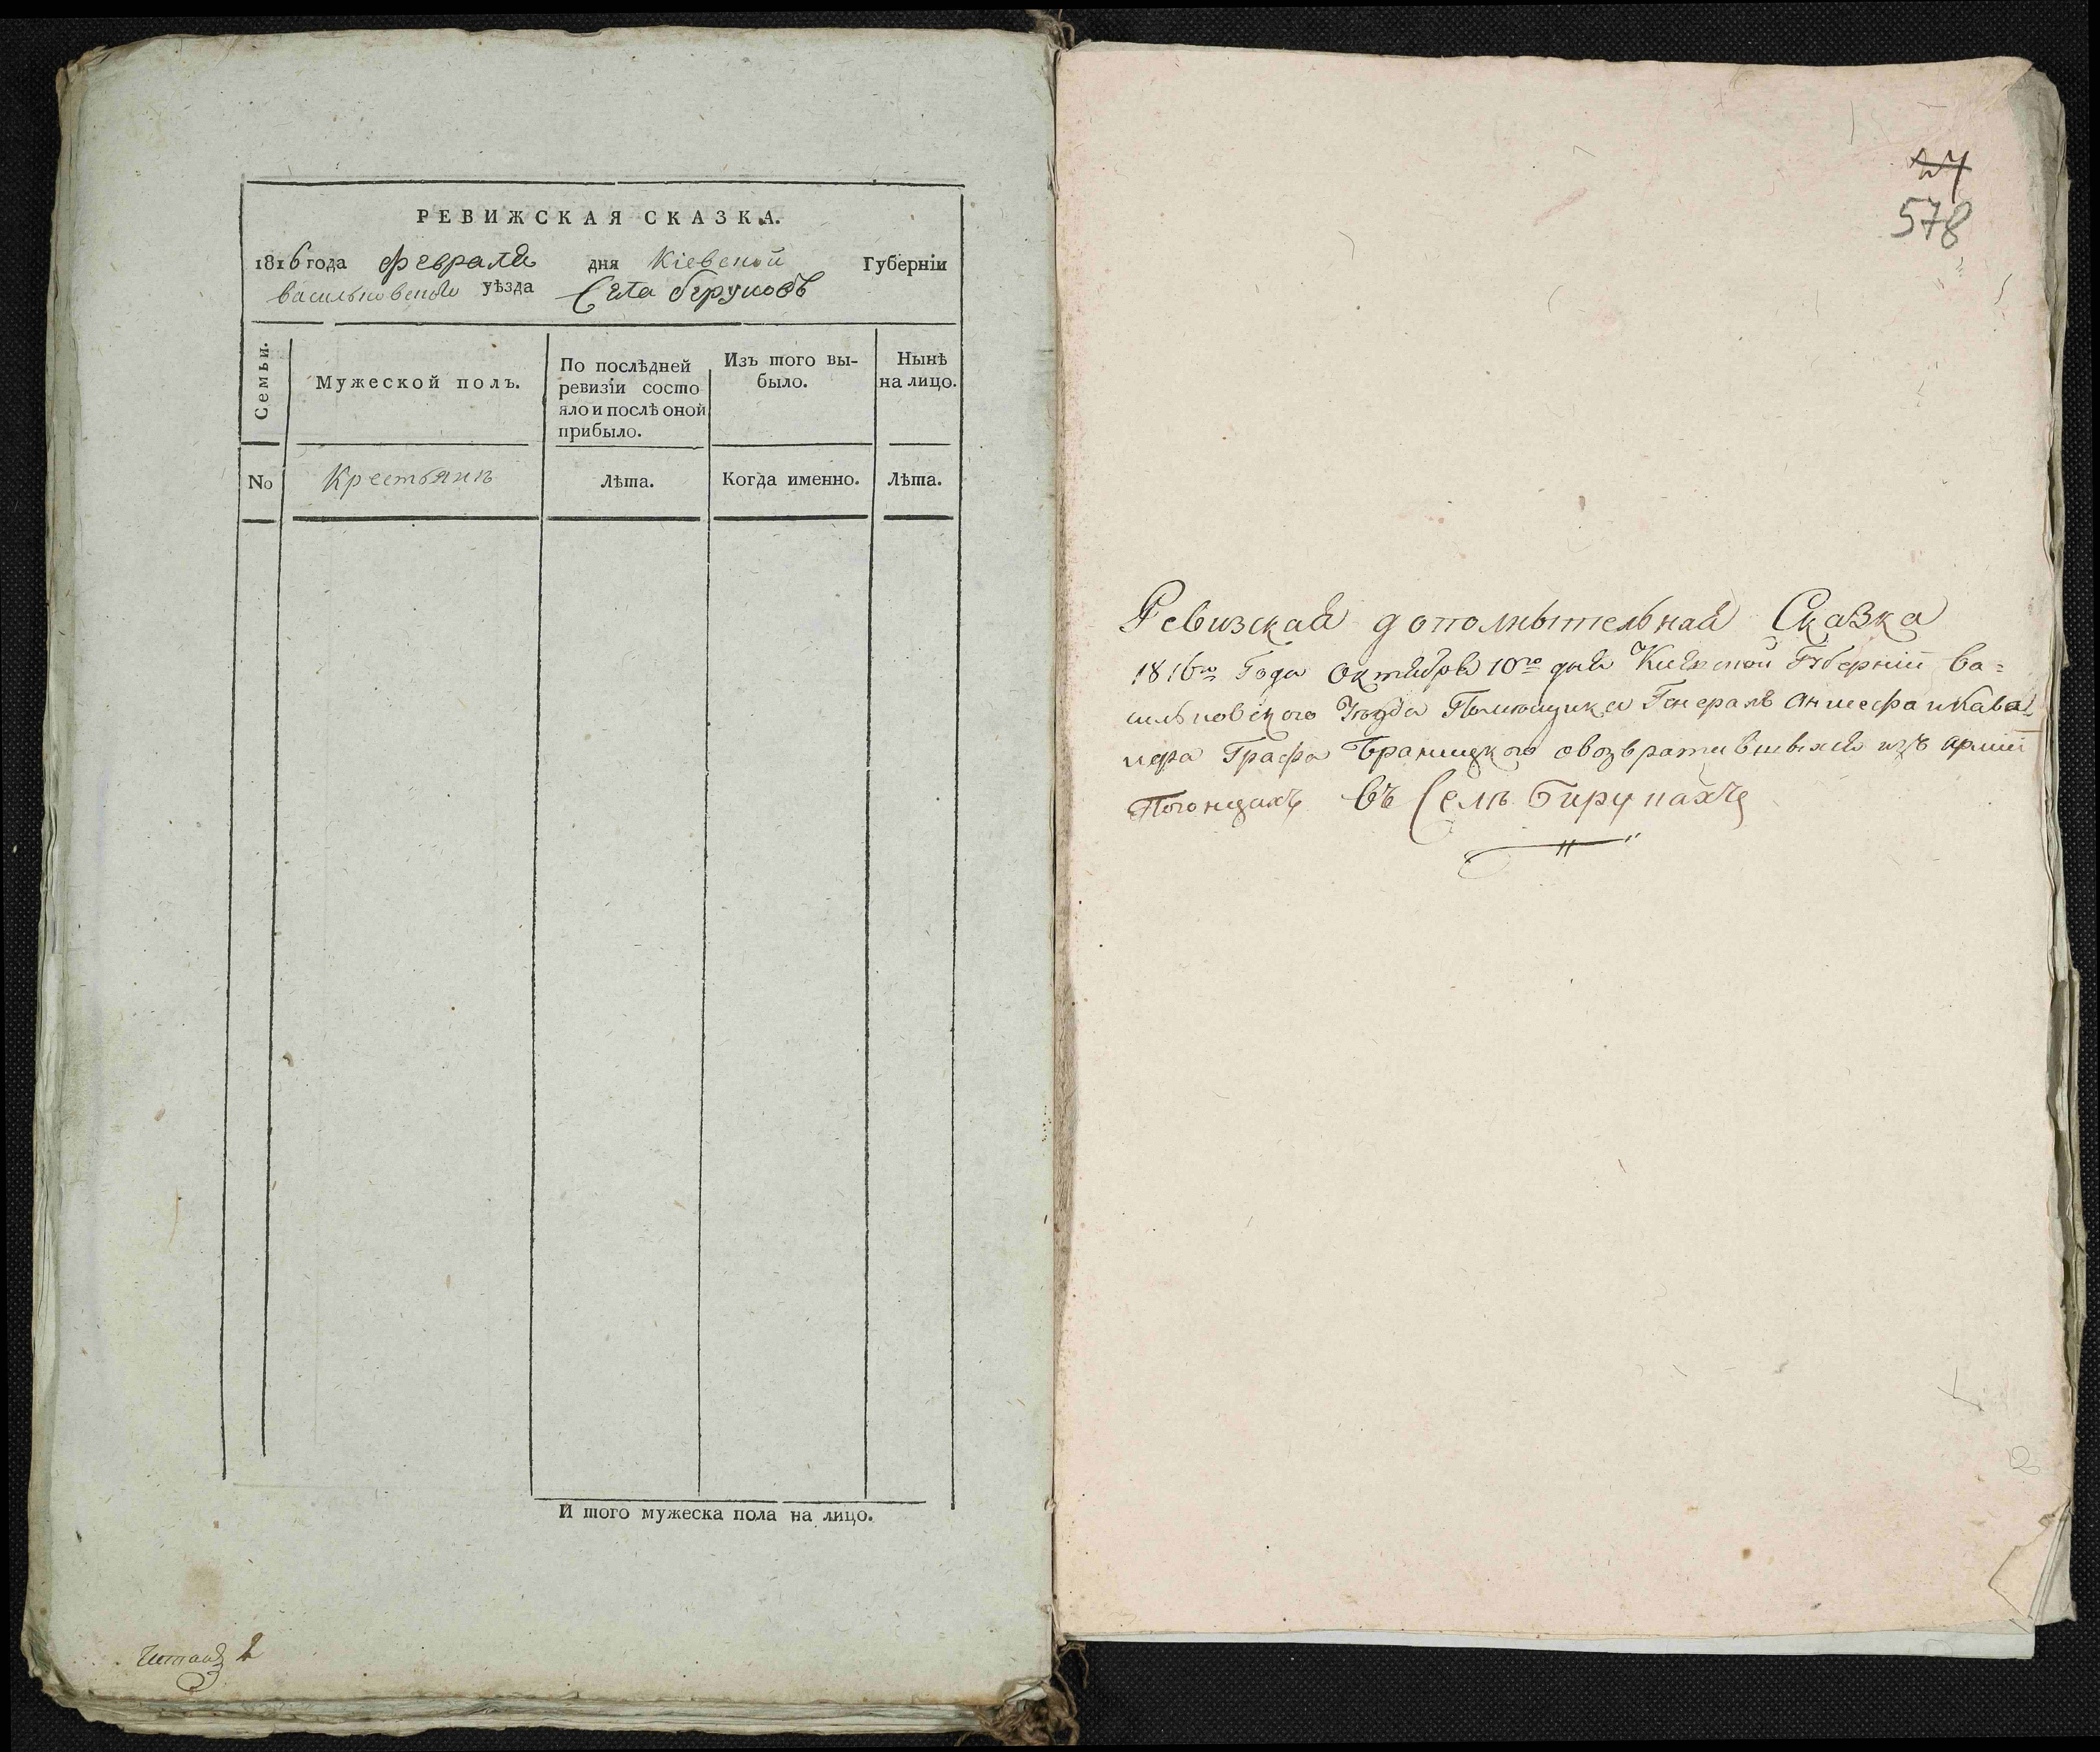 РЕВИЖСКАЯ СКАЗКА.
1816 года февраля дня Кіевской Губерніи
васильковского уѣзда Села бируковъ
Семьи. Мужеской полъ. По послѣдней ревизіи состо яло и послѣ оной прибыло. Изъ того вы- было. Нынѣ на лицо.
No Крестьянъ Лѣта. Когда именно. Лѣта.
И того мужеска пола на лицо.
2
27
578
Ревизская дополнытельная Сказка
1816го Года Октября 10го дня Киевской Губерніи Ва=
сильковского Уезда Помющика Генералъ Аншефа и Кавал-
иера Графа Браницкого овозвратившыхся изъ арміи
Погонцахъ въ Селѣ Бирукахъ